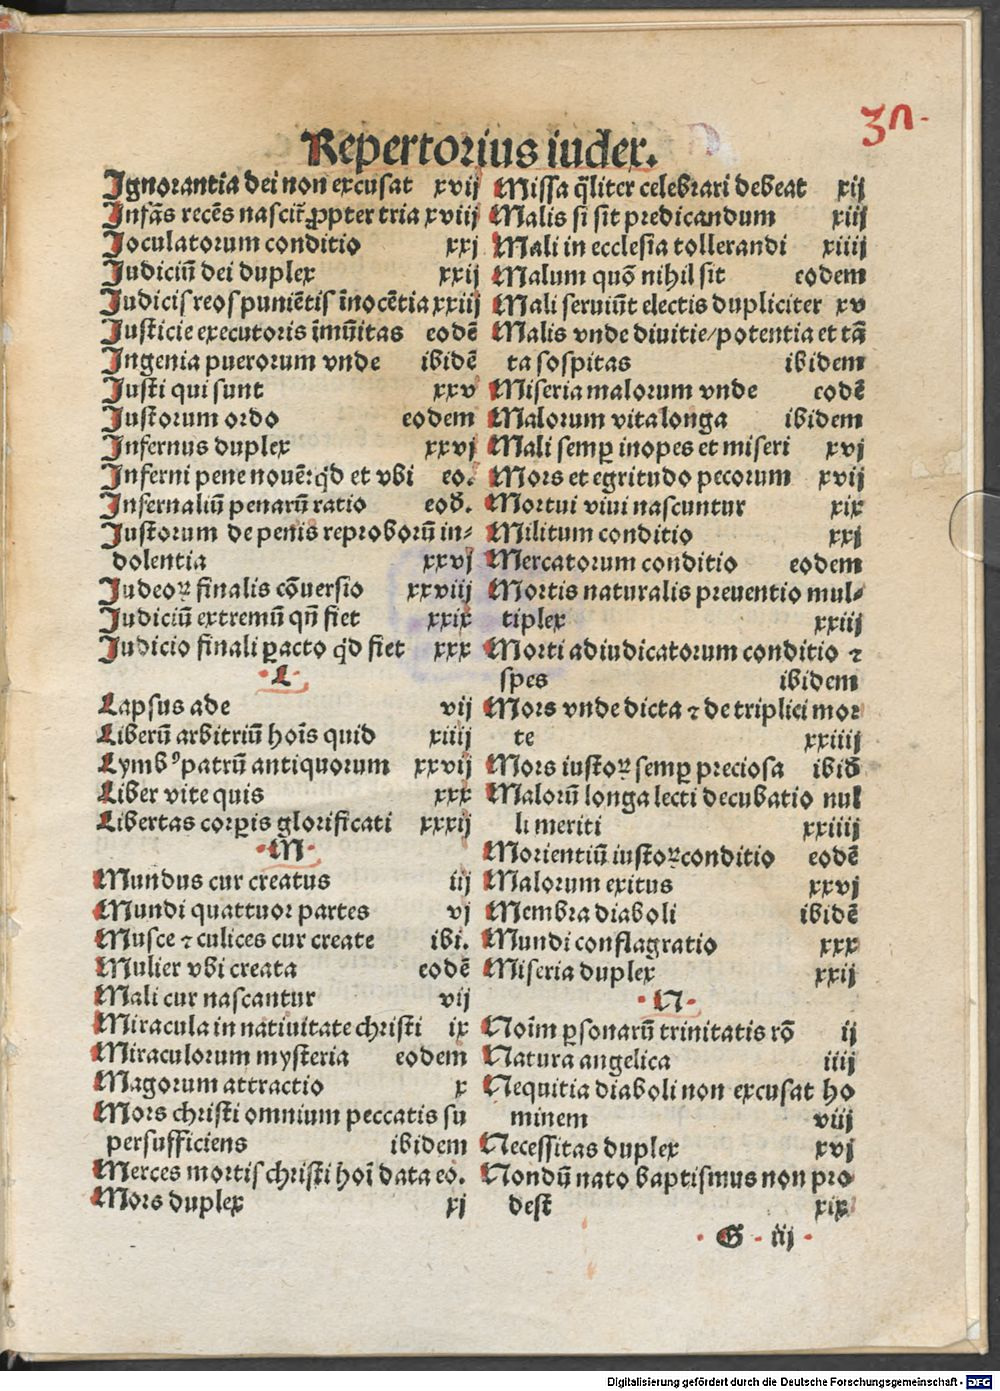 30.
Repertorius iudex.
Ignorantia dei non excusat xvij
Infās recēs nascit̄ ꝓpter tria xviij
Joculatorum conditio xxj
Judiciū dei duplex xxij
Judicis reos puniētis īnocētia xxiij
Justicie executoris īmūitas eodē
Ingenia puerorum vnde ibidē
Justi qui sunt xxv
Justorum ordo eodem
Infernus duplex xxvj
Inferni pene nouē: qd et vbi eo.
Infernaliū penarū ratio eod.
Justorum de penis reproborū in⸗
dolentia xxvj
Judeoꝝ finalis cōuersio xxviij
Judiciū extremū qn̄ fiet xxix
Judicio finali ꝑacto qd fiet xxx
·L·
Lapsus ade vij
Liberū arbitriū hoīs quid xiiij
Lymbꝰ patrū antiquorum xxvij
Liber vite quis xxx
Libertas corꝑis glorificati xxxij
·M·
Mundus cur creatus iij
Mundi quattuor partes vj
Musce ⁊ culices cur create ibi.
Mulier vbi creata eodē
Mali cur nascantur vij
Miracula in natiuitate christi ix
Miraculorum mysteria eodem
Magorum attractio x
Mors christi omnium peccatis su
persufficiens ibidem
Merces mortis christi hoī data eo.
Mors duplex xj
Missa qliter celebrari debeat xij
Malis si sit predicandum xiij
Mali in ecclesia tollerandi xiiij
Malum quō nihil sit eodem
Mali seruiūt electis dupliciter xv
Malis vnde diuitie/potentia et tā
ta sospitas ibidem
Miseria malorum vnde eodē
Malorum vita longa ibidem
Mali semꝑ inopes et miseri xvj
Mors et egritudo pecorum xvij
Mortui viui nascuntur xix
Militum conditio xxj
Mercatorum conditio eodem
Mortis naturalis preuentio mul⸗
tiplex xxiij
Morti adiudicatorum conditio ⁊
spes ibidem
Mors vnde dicta ⁊ de triplici mor
te xxiiij
Mors iustoꝝ semꝑ preciosa ibid
Malorū longa lecti decubatio nul
li meriti xxiiij
Morientiū iustoꝝ conditio eodē
Malorum exitus xxvj
Membra diaboli ibidē
Mundi conflagratio xxx
Miseria duplex xxij
·N·
Noīm ꝑsonarū trinitatis rō ij
Natura angelica iiij
Nequitia diaboli non excusat ho
minem viij
Necessitas duplex xvj
Nondū nato baptismus non pro
dest xix
G iij
Digitalisierung gefördert durch die Deutsche Forschungsgemeinschaft - DFG